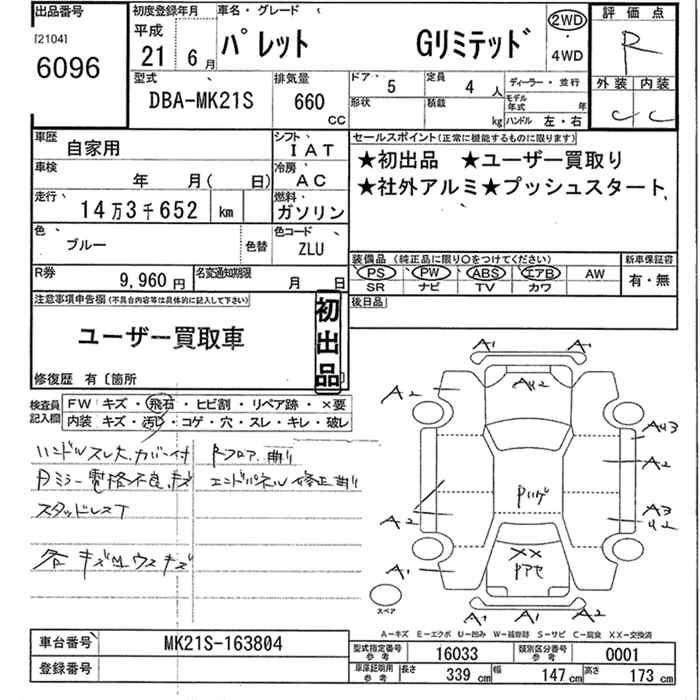 出品番号
[2104]
6096
初度登録年月
平成
21年 6月
車名・グレード
パレット Gリミテッド
2WD
4WD
評価点
R
外装 内装
C C
型式
DBA-MK21S
排気量
660 CC
ドア・形状
5
定員
4人
積載
kg
ディーラー・並行
モデル年式 年
ハンドル 左・右
車歴
自家用
シフト
IAT
車検
年 月( 日)
冷房
AC
走行
14万3千652 km
燃料
ガソリン
色
ブルー
色替
色コード
ZLU
R券
9,960円
名変通知期限
月 日
セールスポイント(正常に機能するものに限ります)
★初出品 ★ユーザー買取り
★社外アルミ★プッシュスタート
装備品(純正品に限り○をつけてください)
新車保証書
PS PW ABS エアB AW
SR ナビ TV カワ
有・無
後日品
注意事項申告欄(不具合内容等は具体的に記入して下さい)
ユーザー買取車
初出品
修復歴 有〔箇所
検査員記入欄
FW キズ・飛石・ヒビ割・リペア跡・×要
内装 キズ・汚レ・コゲ・穴・スレ・キレ・破レ
ハンドルスレ大、カバー付
Rフロア曲り
電格不良、キズ
エンドパネル修正曲り
スタッドレスT
各キズ
A1 A1
A2 AU2
AU3
A2
A2
A3
U2
XX
A1
A2
A1 A1 A2
スペア
A-キズ E-エクボ U-凹み W-補修跡 S-サビ C-腐食 XX-交換済
車台番号
MK21S-163804
登録番号
型式指定番号 参考
16033
類別区分番号 参考
0001
車庫証明用 参考
長さ 339cm 幅 147cm 高さ 173cm